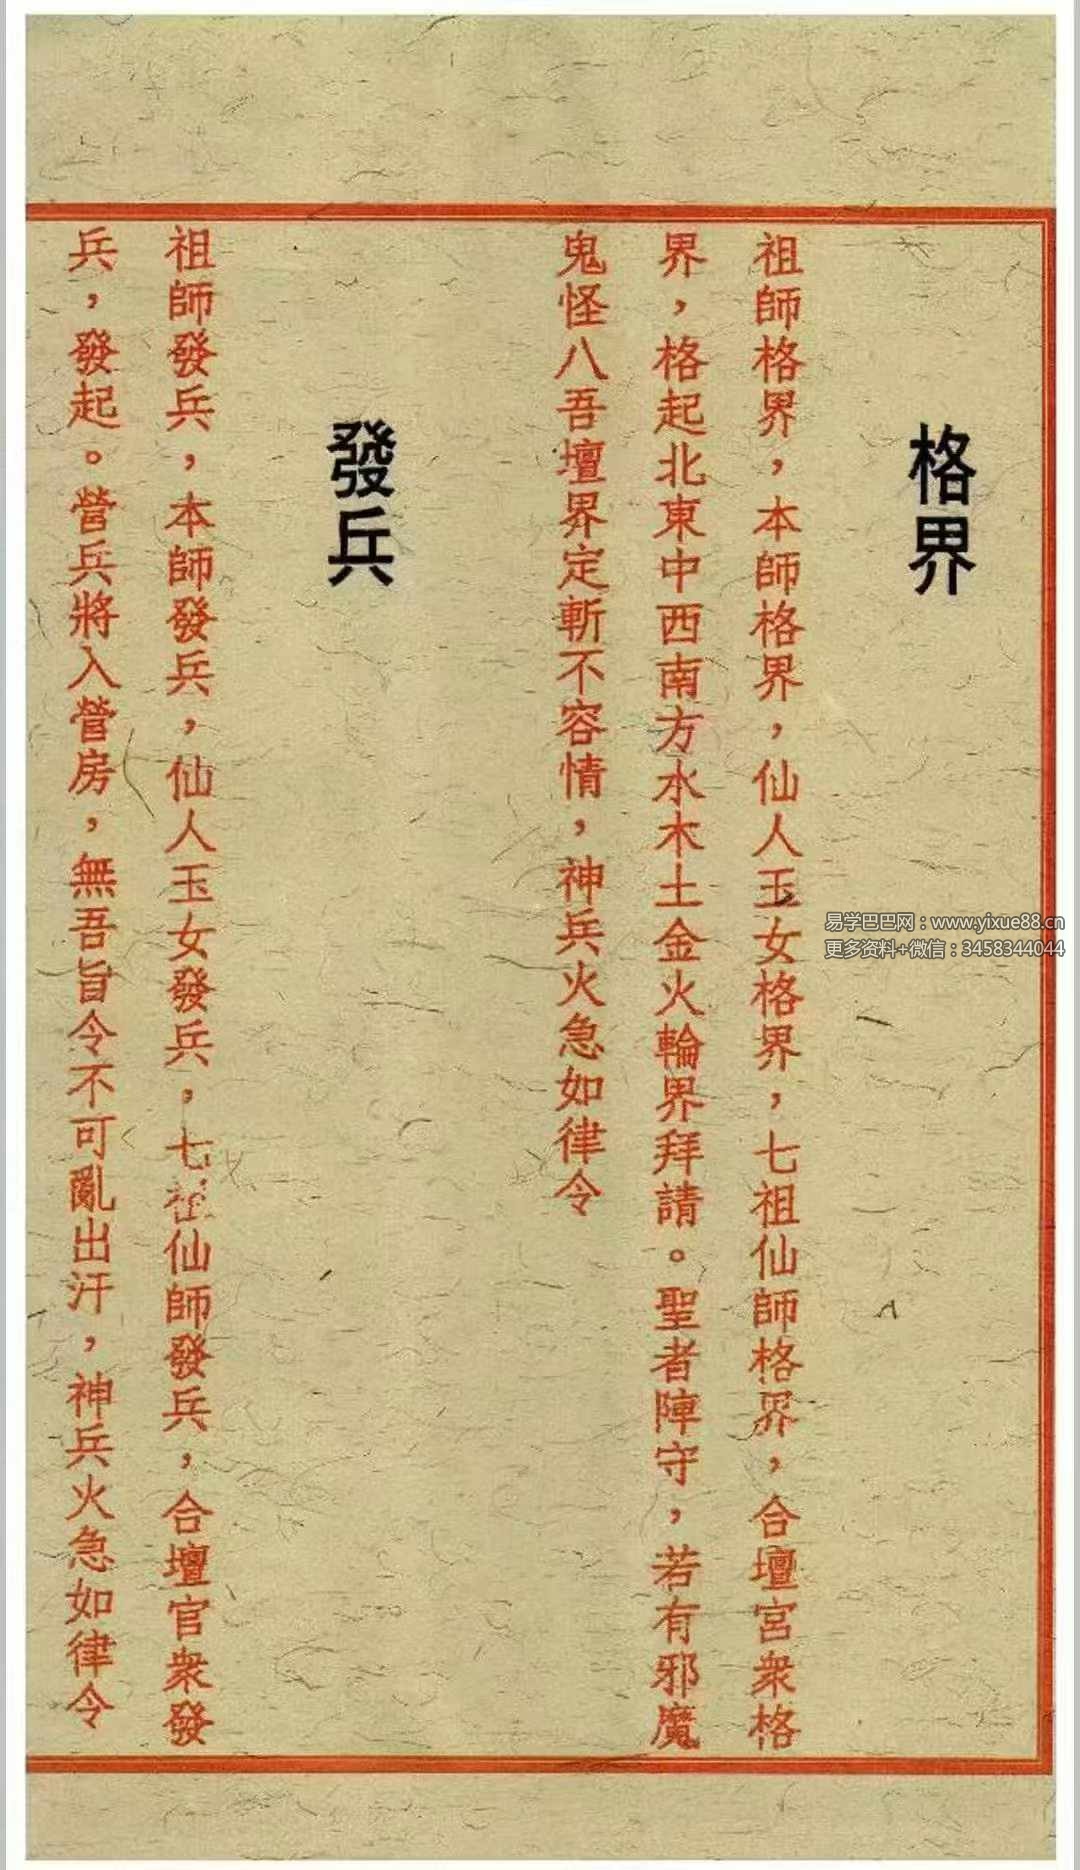 格界
祖師格界，本師格界，仙人玉女格界，七祖仙師格界，合壇宮衆格
界，格起北東中西南方水木土金火輪界拜請。聖者陣守，若有邪魔
鬼怪八吾壇界定斬不容情，神兵火急如律令
發兵
祖師發兵，本師發兵，仙人玉女發兵，七祖仙師發兵，合壇官衆發
兵，發起。營兵將入營房，無吾旨令不可亂出汗，神兵火急如律令
易学巴巴网：www.yixue88.cn
更多资料+微信：3458344044